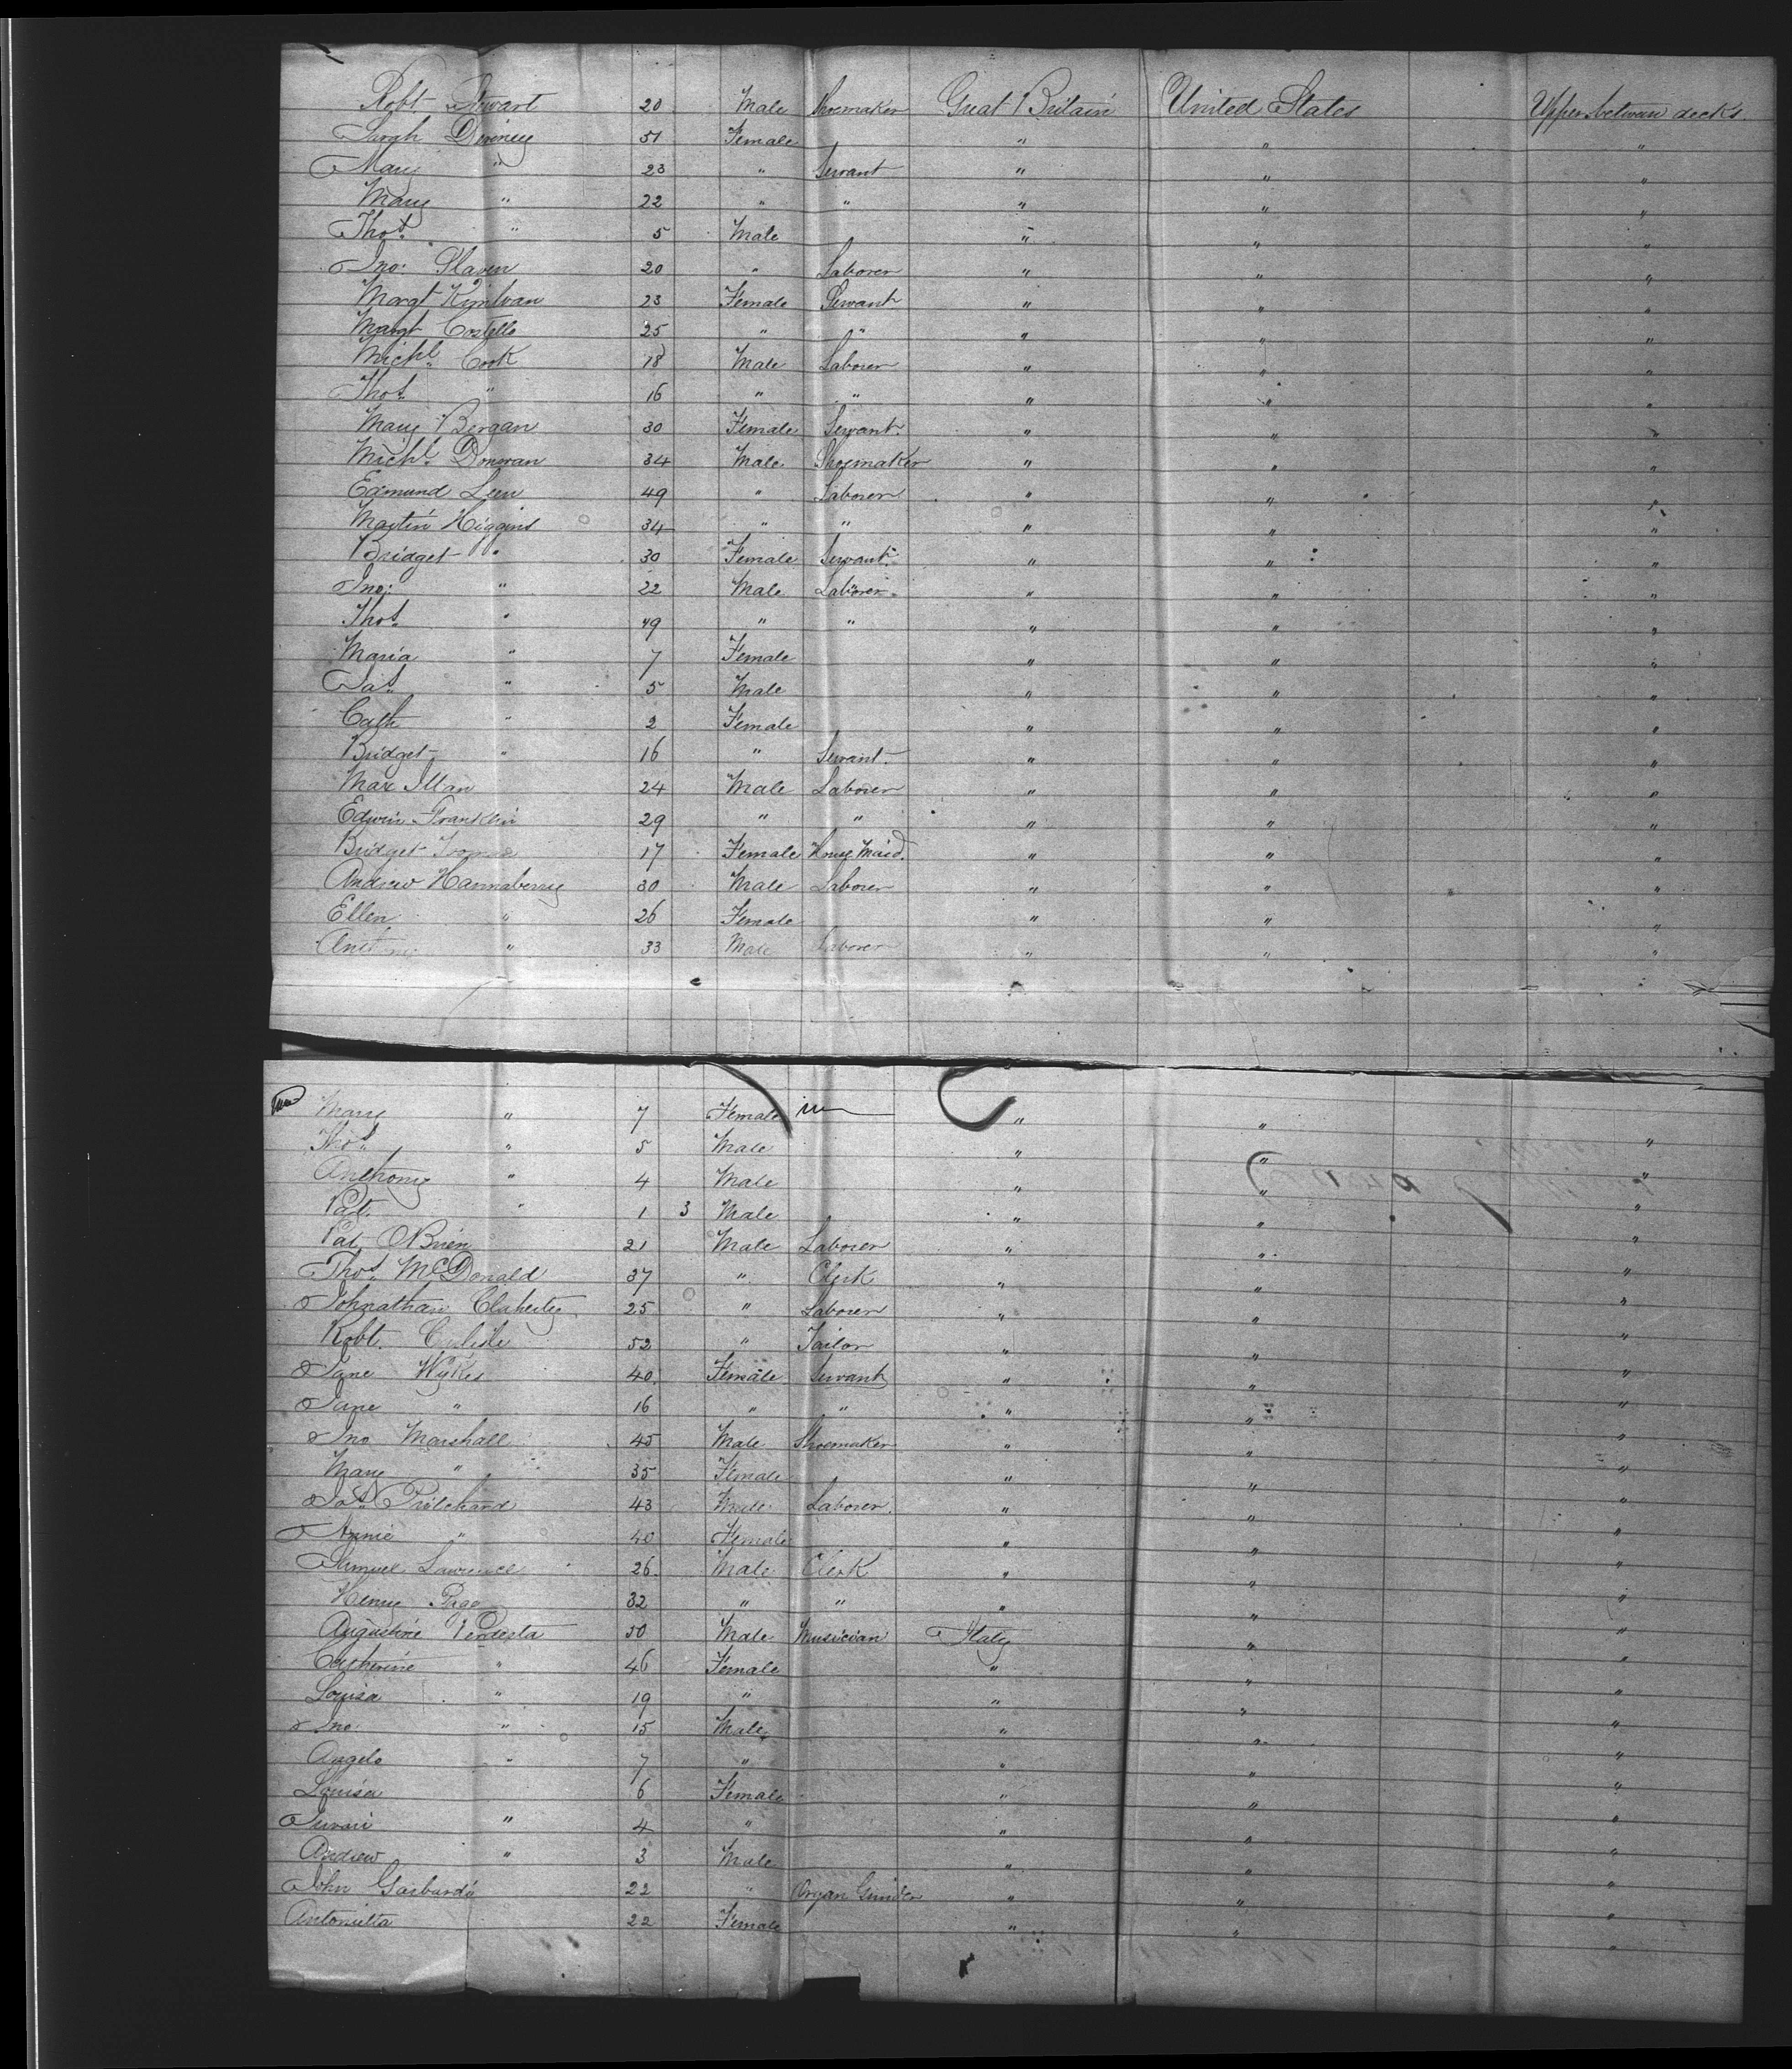 Robt. Stewart 20 Male Shoemaker Great Britain United States Upper between decks
Sarah 51 Female " " "
Mary " 23 " Servant " " "
Mary " 22 " " " " "
Thos. " 5 Male " " "
Jno: Slaven 20 " Laborer " " "
Margt 23 Female Servant " " "
Margt Costello 25 " " " " "
Michl. Cook 18 Male Laborer " " "
Thos. " 16 " " " " "
Mary Bergan 30 Female Servant. " " "
Michl. Donovan 34 Male Shoemaker " " "
Edmund Leen 49 " Laborer " " "
Martin Higgins 34 " " " " "
Bridget " 30 Female Servant " " "
Jno: " 22 Male Laborer " " "
Thos. " " " " " "
Maria " 7 Female " " "
Jas. " 5 Male " " "
Cath " 2 Female " " "
Bridget " 16 " Servant. " " "
Max Illan 24 Male Laborer " " "
Edwin Franklin 29 " " " " "
Bridget 17 Female House Maid. " " "
Andrew Hannaberry 30 Male Laborer " " "
Ellen " 26 Female " " "
" 33 Male Laborer " " "
Mary " 7 Female " " "
Thos. " 5 Male " " "
Anthony " 4 Male " " "
Pat. " 1 3 Male " " "
Pat. OBrien 21 Male Laborer " " "
Thos. McDonald 37 " Clerk " " "
Johnathan Claherty 25 " Laborer " " "
Robt. 52 " Tailor " " "
Jane Wykes 40. Female Servant " " "
Jane " 16 " " " " "
Jno Marshall 45 Male Shoemaker " " "
Mary " 35 Female " " "
Jas. Pritchard 43 Male Laborer. " " "
Annie " 40 Female " " "
Samuel Lawrence 26. Male Clerk " " "
Henry Page 32 " " " " "
Augustine 50 Male Musician Italy " "
Catherine " 46 Female " " "
Louisa " 19 " " " "
Jno. " 15 Male " " "
Angelo " 7 " " " "
Louisa 6 Female " " "
" 4 " " " "
Andrew " 3 Male " " "
John 22 " Organ Grinder " " "
Antonietta 22 Female " " "